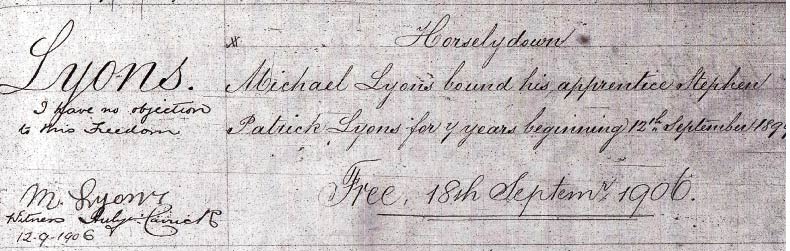 Horselydown
Lyons.
Michael Lyons bound his apprentice Stephen
I have no objection
to this Freedom
Patrick Lyons for 7 years beginning 12th September 189
Free, 18th Septemr 1906.
M. Lyons
Witness
12-9-1906